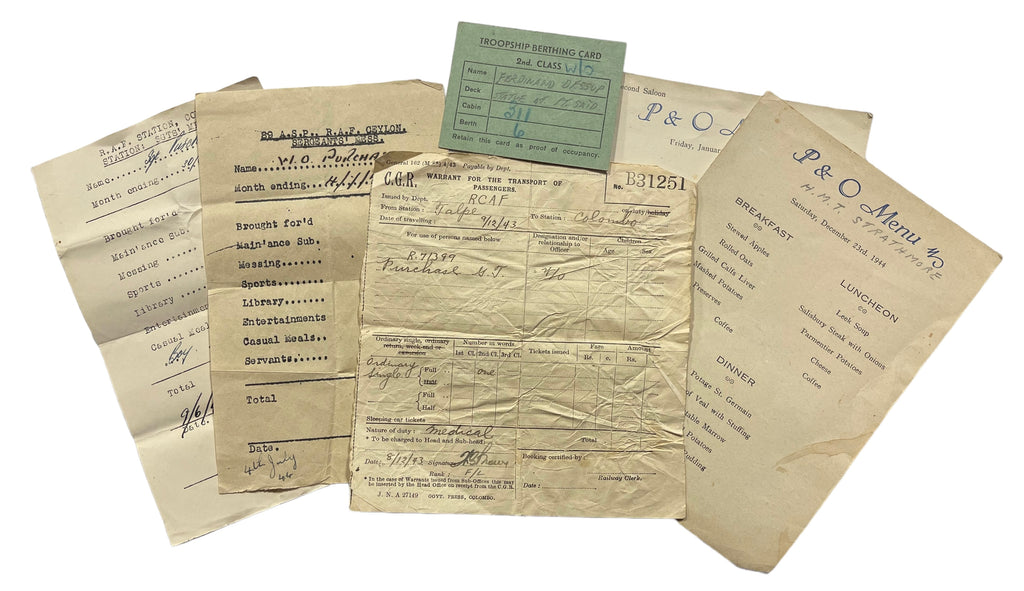 R.A.F. STATION, CO
STATION: SGTS' M
Name
Month ending
Brought for'd
Main'ance Sub.
Messing
Sports
Library
Entertainment
Casual Meal
Boy
Total
9/6/
Date.
89 A.S.P., R.A.F. CEYLON.
SERGEANTS' MESS.
Name.. W.O.
Month ending
Brought for'd
Main'ance Sub.
Messing.......
Sports........
Library.......
Entertainments
Casual Meals..
Servants......
Total
Date.
4th July
TROOPSHIP BERTHING CARD
2nd. CLASS W/O
Name FERDINAND
Deck
Cabin 311
Berth 6
Retain this card as proof of occupancy.
General 162 Payable by Dept.
C.G.R. WARRANT FOR THE TRANSPORT OF PASSENGERS.
No. B31251
Issued by Dept. RCAF
On duty/holiday
From Station: Talpe To Station: Colombo
Date of travelling: 9/12/43
For use of persons named below
Designation and/or relationship to Officer
Children
Age Sex
R.71399
Purchase G.T. W/O
Ordinary single, ordinary return, week-end or excursion
Number in words
1st Cl. 2nd Cl. 3rd Cl.
Tickets issued
Fare
Rs. c.
Amount
Rs.
Ordinary Single
Full one
Half
Full
Half
Sleeping car tickets
Nature of duty: medical
* To be charged to Head and Sub-head
Total
Date: 8/12/43 Signature
Rank: F/L
Booking certified by:
Railway Clerk.
Date:
* In the case of Warrants issued from Sub-Offices this may be inserted by the Head Office on receipt from the C.G.R.
J. N. A 27149 GOVT. PRESS, COLOMBO.
econd Saloon
P & O
Friday, Januar
P & O Menu
H.M.T. STRATHMORE
Saturday, December 23rd, 1944
BREAKFAST
Stewed Apples
Rolled Oats
Grilled Calfs Liver
Mashed Potatoes
Preserves
Coffee
LUNCHEON
Leek Soup
Salisbury Steak with Onions
Parmentier Potatoes
Cheese
Coffee
DINNER
Potage St. Germain
of Veal with Stuffing
table Marrow
Potatoes
udding